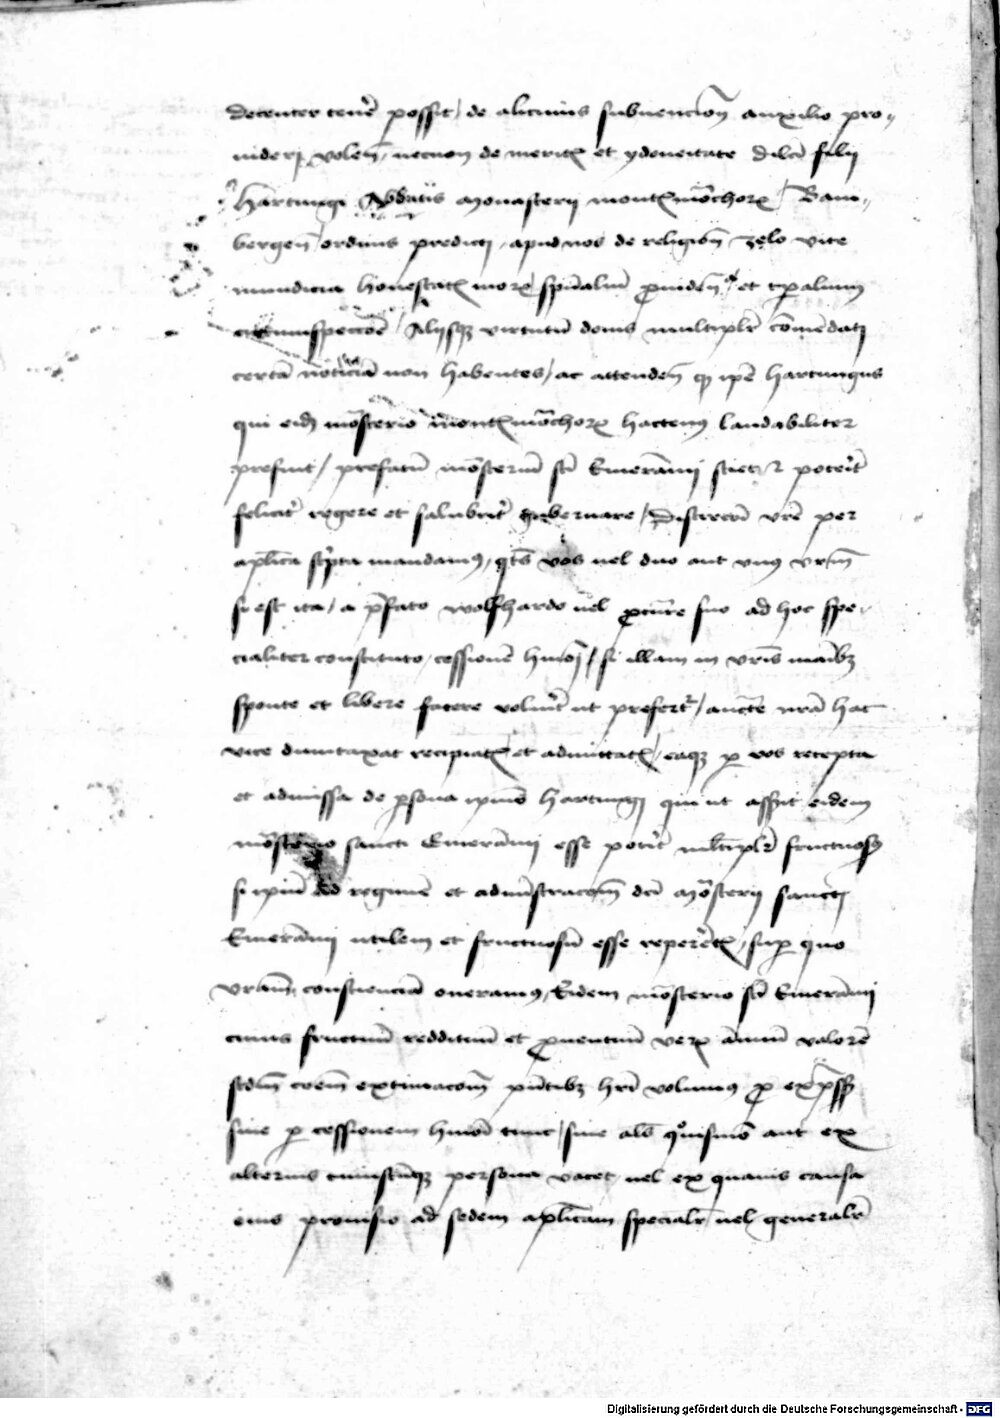 decenter tenere possit / de alicuius subuencion auxilio pro„
uideri volen necnon de meritis et ydoneitate dilcti filij
Hartungi Abbatis Monasterij montis mochorum / Bam„
bergen ordinis predicti apud nos de religion zelo vite
mundicia honestate morum spualium prouiden et tpalium
circumspeccone / Alijsque virtutum donis multiplr comendati
certam noticiam non habentes / ac attenden quod ipse Hartungus
qui eidem mosterio montis mochorum hactenus laudabiliter
prefuit / prefatum mosterium sti Emerammi sciet et poterit
feliciter regere et salubriter gubernare / Discrecioni vre per
aplica scripta mandamus / quatenus vos uel duo aut vnus vrum
si est ita / a prefato Wolfhardo uel procure suo ad hoc spe
cialiter constituto / cessionem hmoi / si illam in vris manibus
sponte et libere facere voluerit ut prefertur / aucte nra hac
vice dumtaxat recipiatis et admittatis / eaque per vos recepta
et admissa de persona ipsius Hartungi qui ut asserit eidem
mosterio sancti Emerammi esse poterit multiplr fructuosus
si ipsum ad regimen et administracom dci Mosterij sancti
Emerammi utilem et fructuosum esse repereritis / super quo
vram conscienciam oneramus / Eidem mosterio sti Emerammi
cuius fructuum reddituum et prouentuum verum annuum valorem
scdm coem extimacom pntibus hri volumus pro expresso
siue per cessionem hmoi tunc / siue als quouismodo aut ex
alterius cuiuscumque persona vacet uel ex quauis causa
eius prouisio ad sedem aplicam specialr uel generalr
Digitalisierung gefördert durch die Deutsche Forschungsgemeinschaft - DFG